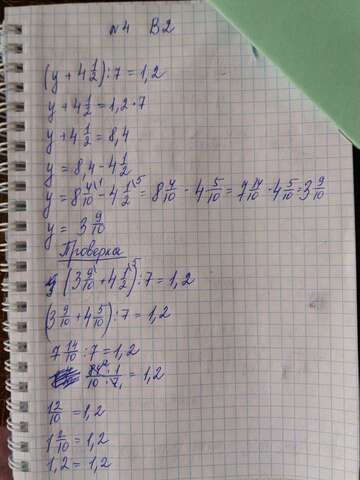 №4 В2
(y + 4 1/2) : 7 = 1,2
y + 4 1/2 = 1,2 · 7
y + 4 1/2 = 8,4
y = 8,4 - 4 1/2
y = 8 4/10 \1 - 4 1/2 \5 = 8 4/10 - 4 5/10 = 7 14/10 - 4 5/10 = 3 9/10
y = 3 9/10
Проверка
(3 9/10 + 4 1/2 \5) : 7 = 1,2
(3 9/10 + 4 5/10) : 7 = 1,2
7 14/10 : 7 = 1,2
84 · 1 / 10 · 7 = 1,2
12/10 = 1,2
1 2/10 = 1,2
1,2 = 1,2